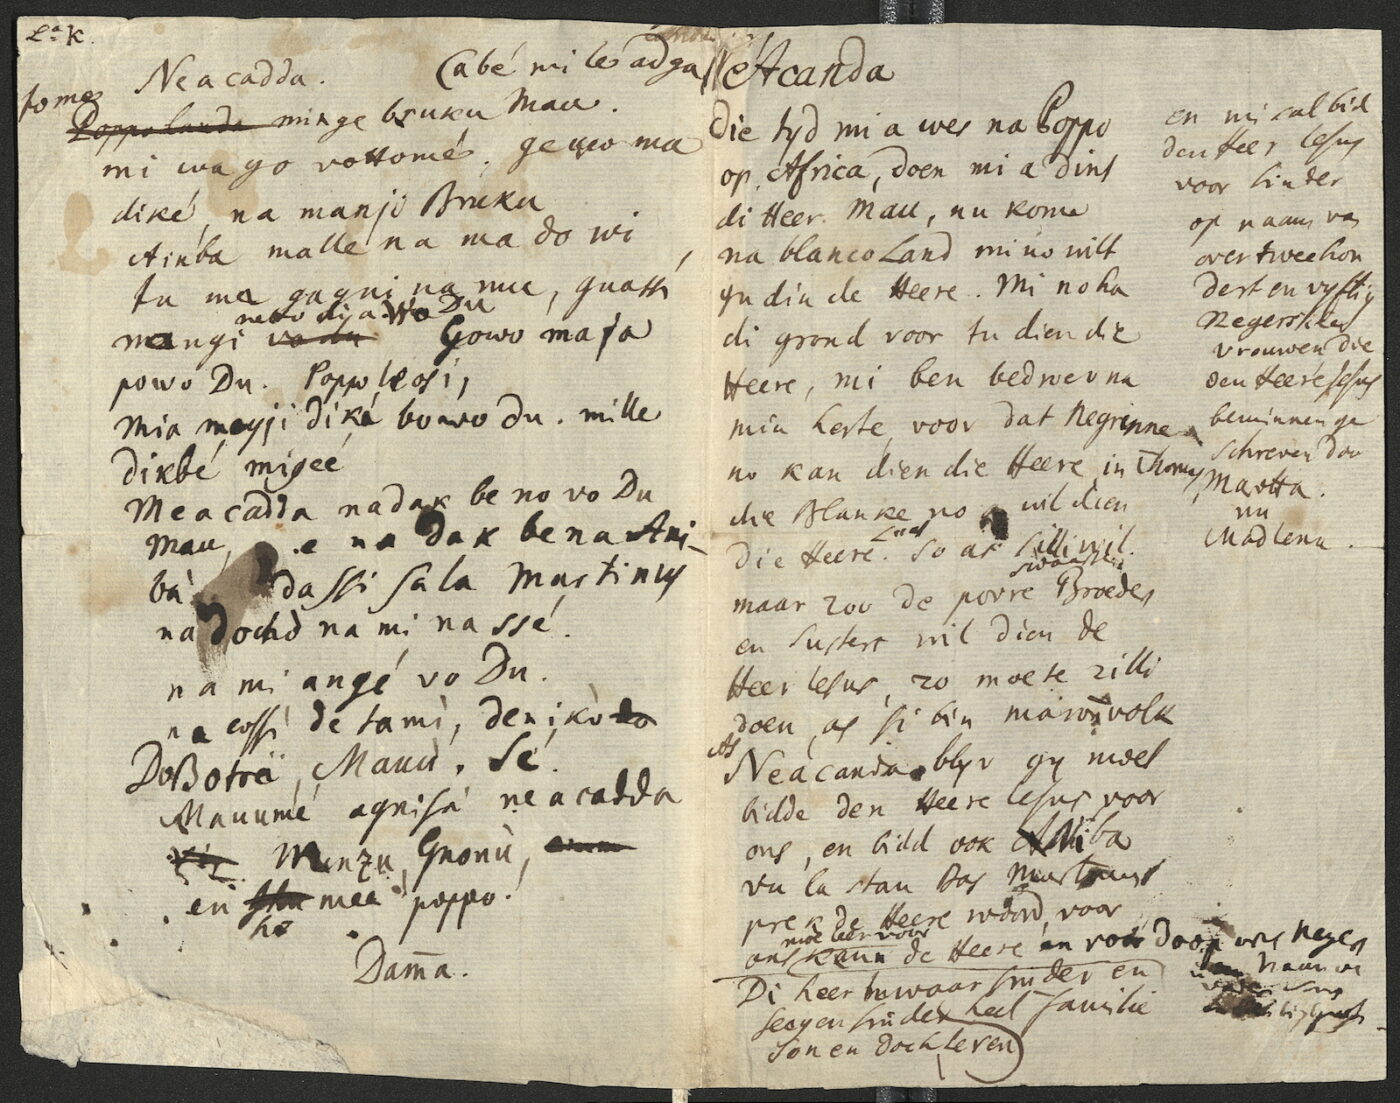 Neacadda.
Cabé mi le adga
tome
Poppo landa minge bruku Mau.
mi wago vottomé. gewo ma
diké, na manji Bruku
Aniba malle na ma do wi
tu ma gagni na mu, guassi
netto dy a Wo Du
mangi Gowo maja
powo Du. Poppo Leosi,
mia meyji diké bowo du. mille
dikbé migeé
Meacadda nadak be no vo Du
Mau, e na dak bena Ani-
bà dassi sala Martinus
na doehd na mi na ssé.
na mi angé vo Du.
na cossi de tami, denikò do
DoBotreï, Mauù, Sé.
Mauumé agnisà neacadda
Munzu, Gnonù,
en mee poppo.
he
Dam̄a.
Acanda
die tyd mi a wes na Poppo
op Africa, doen mi a dint
di Heer Mau, nu kome
na blanco Land mi no wilt
gu din de Heere. Mi no ha
di grond voor tu dien die
Heere, mi ben bedroev na
min herte, voor dat Negrinne
no kan dien die Heere in Thomas,
die Blanke no wil dien
die Heere. So as silli wil.
maar zoo de povre Broeders
en Susters wil dien de
Heer Jesus, zo moete zilli
doen, as si bin maron volk
As
Neacanda blyv gy moet
bidde den Heere Jesus voor
ons, en bidd ook Aniba
vu la stan Bas Martinus
prek de Heere woord, voor
ons moe leer voor
de Heere en voor Doop ons Neger
Di heer bewaar sinder en
seegen sinder, heel familie
Son en dochteren
en mi sal bid
den Heer Jesus
voor sinder
op naam van
over twee hon
dert en vyftig
Negersklav
vrouwen die
den Heere Jesus
beminnen ge
schreven doo
Marotta.
nu
Madlena.